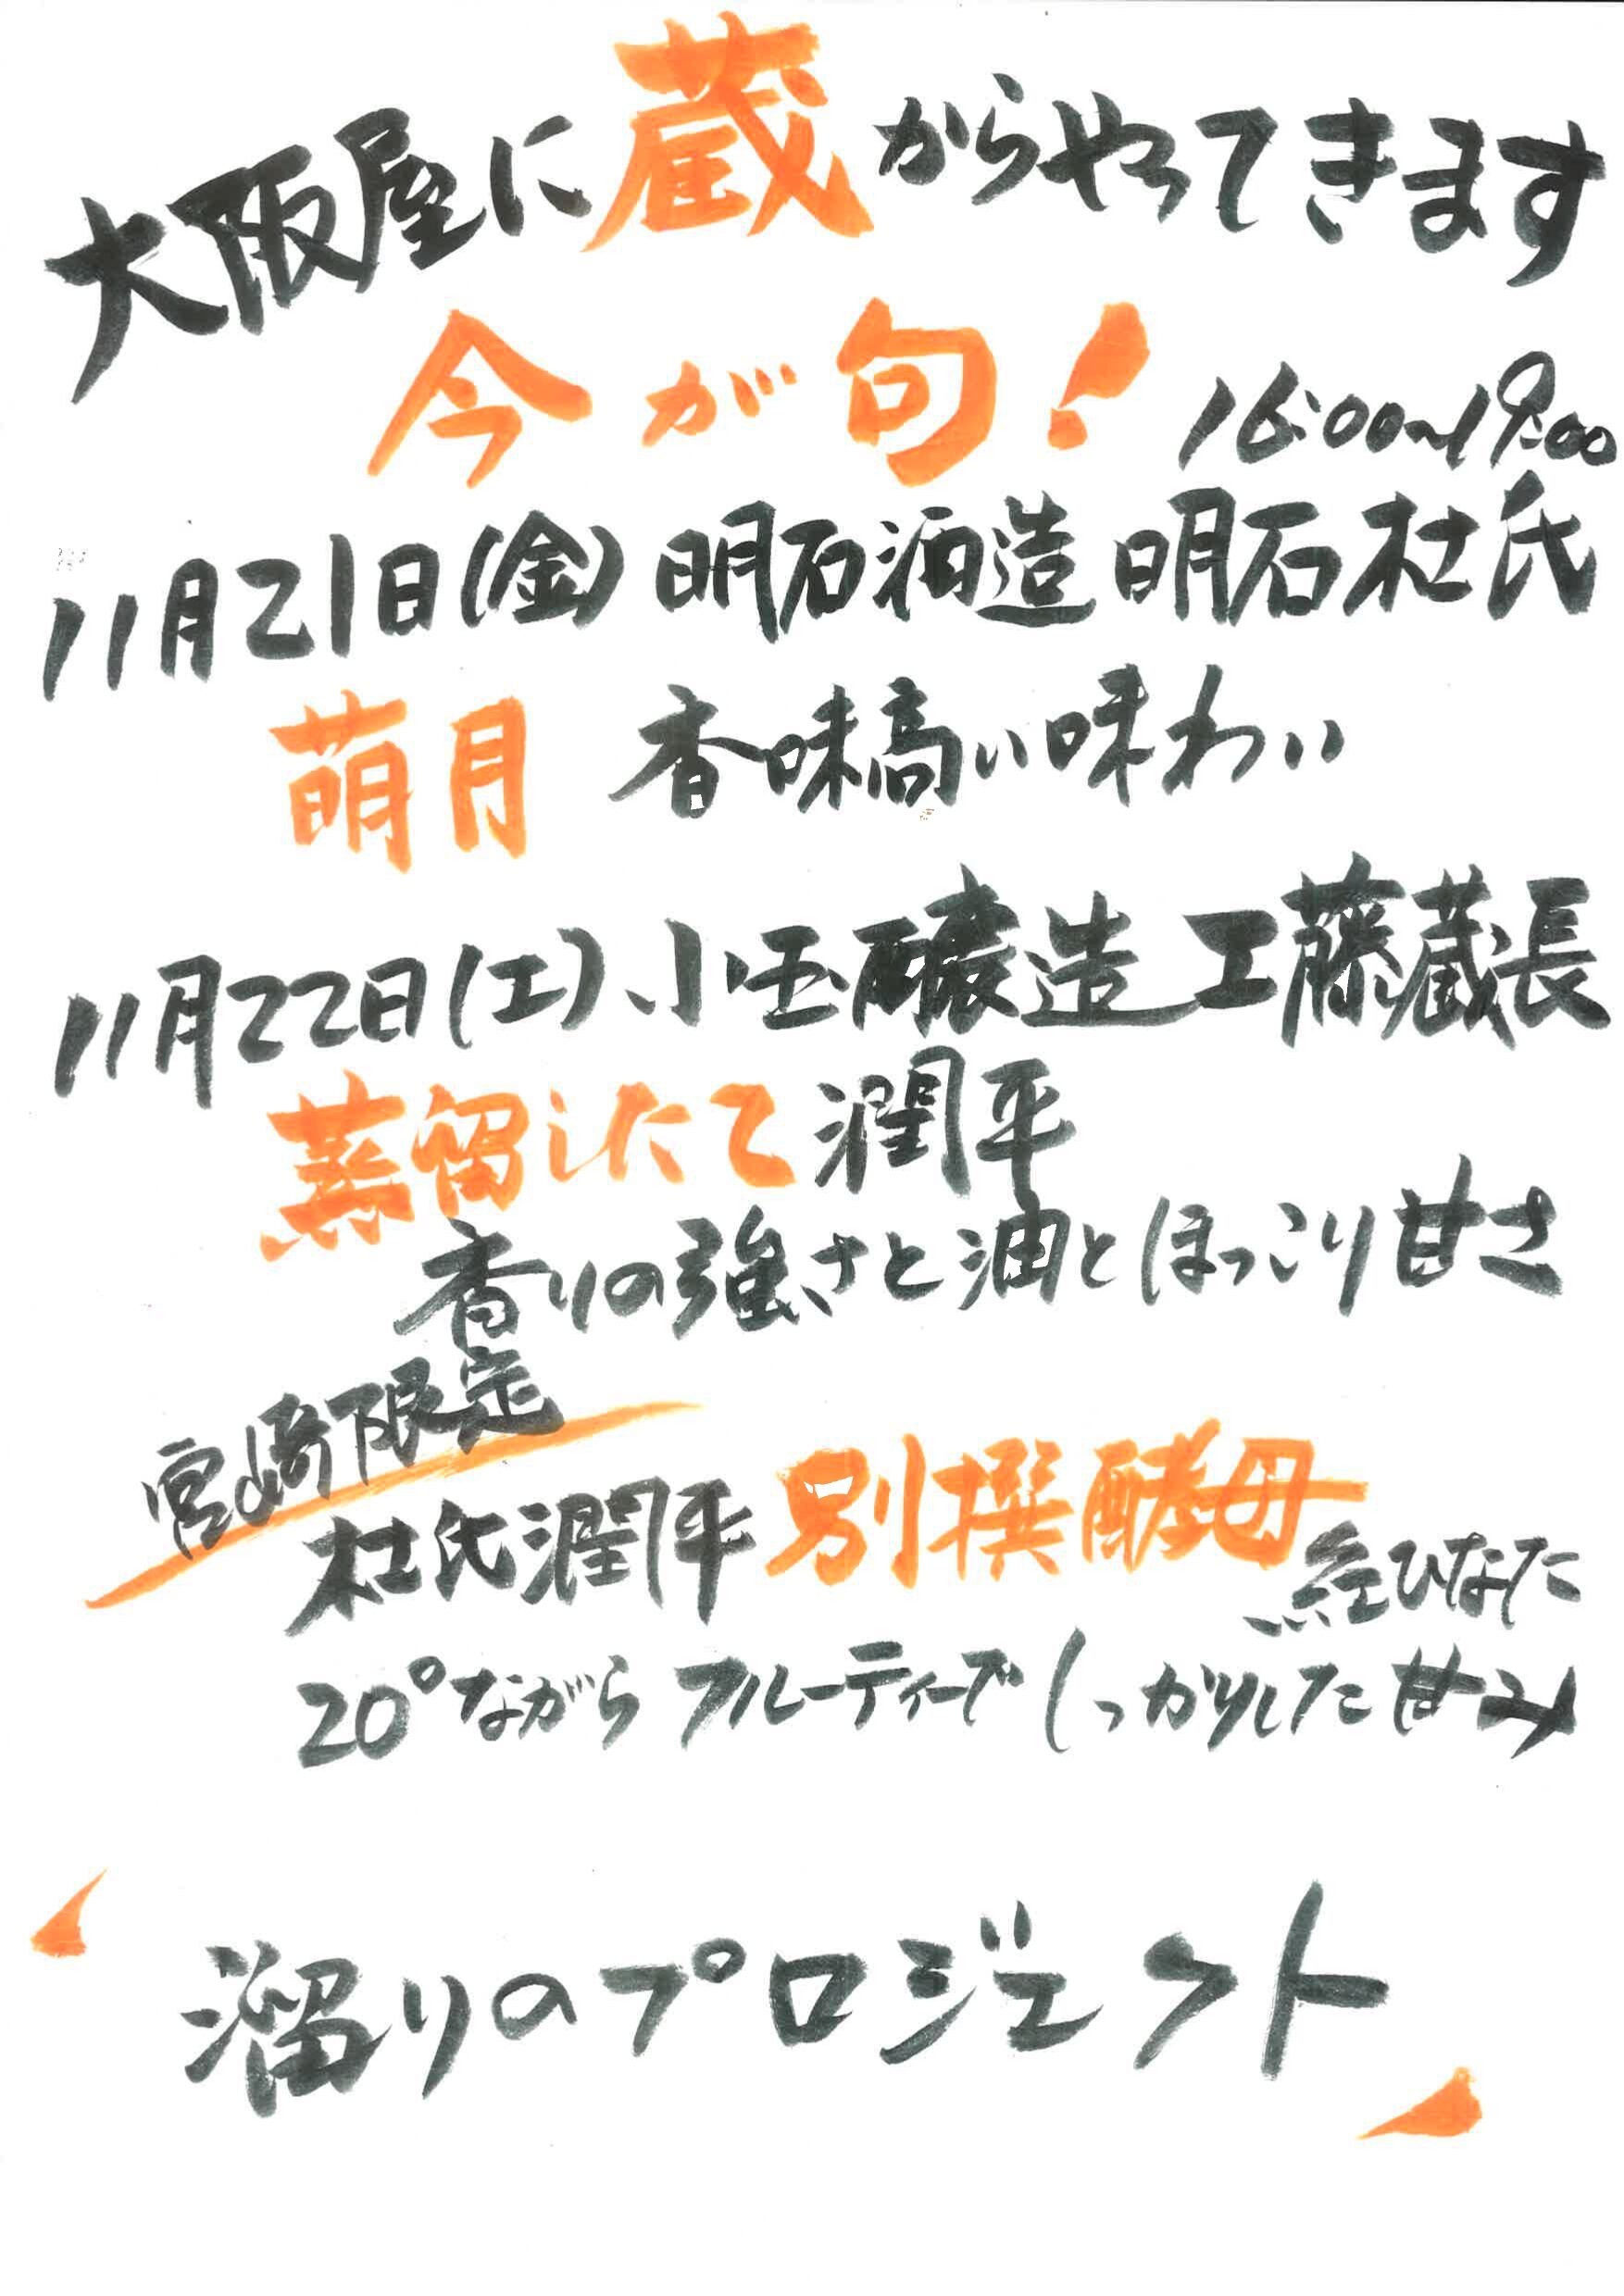 大阪屋に蔵からやってきます
今が旬!
16:00〜19:00
11月21日(金) 明石酒造 明石杜氏
萌月 香味高い味わい
11月22日(土) 小玉醸造 工藤蔵長
蒸留したて 潤平
香りの強さと油とほっこり甘さ
宮崎限定
杜氏潤平 別撰酵母
紅ひなた
20°ながら フルーティーで しっかりした甘み
溜りのプロジェクト